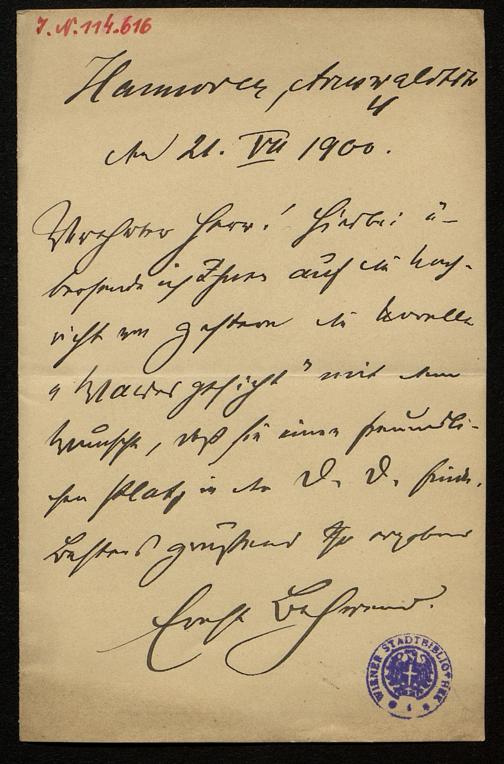 J. N. 114.616
Hannover, Arnswaldtstr
4
den 21. VII 1900.
Verehrter Herr! Hierbei ü-
bersende ich Ihnen auf die Nach-
richt von gestern die Novelle
„Waldesgesicht" mit dem
Wunsche, daß sie einen freundli-
chen Platz in der D. D. finde.
Bestens grüßend Ihr ergebener
Ernst Behrend.
WIENER STADTBIBLIOTHEK